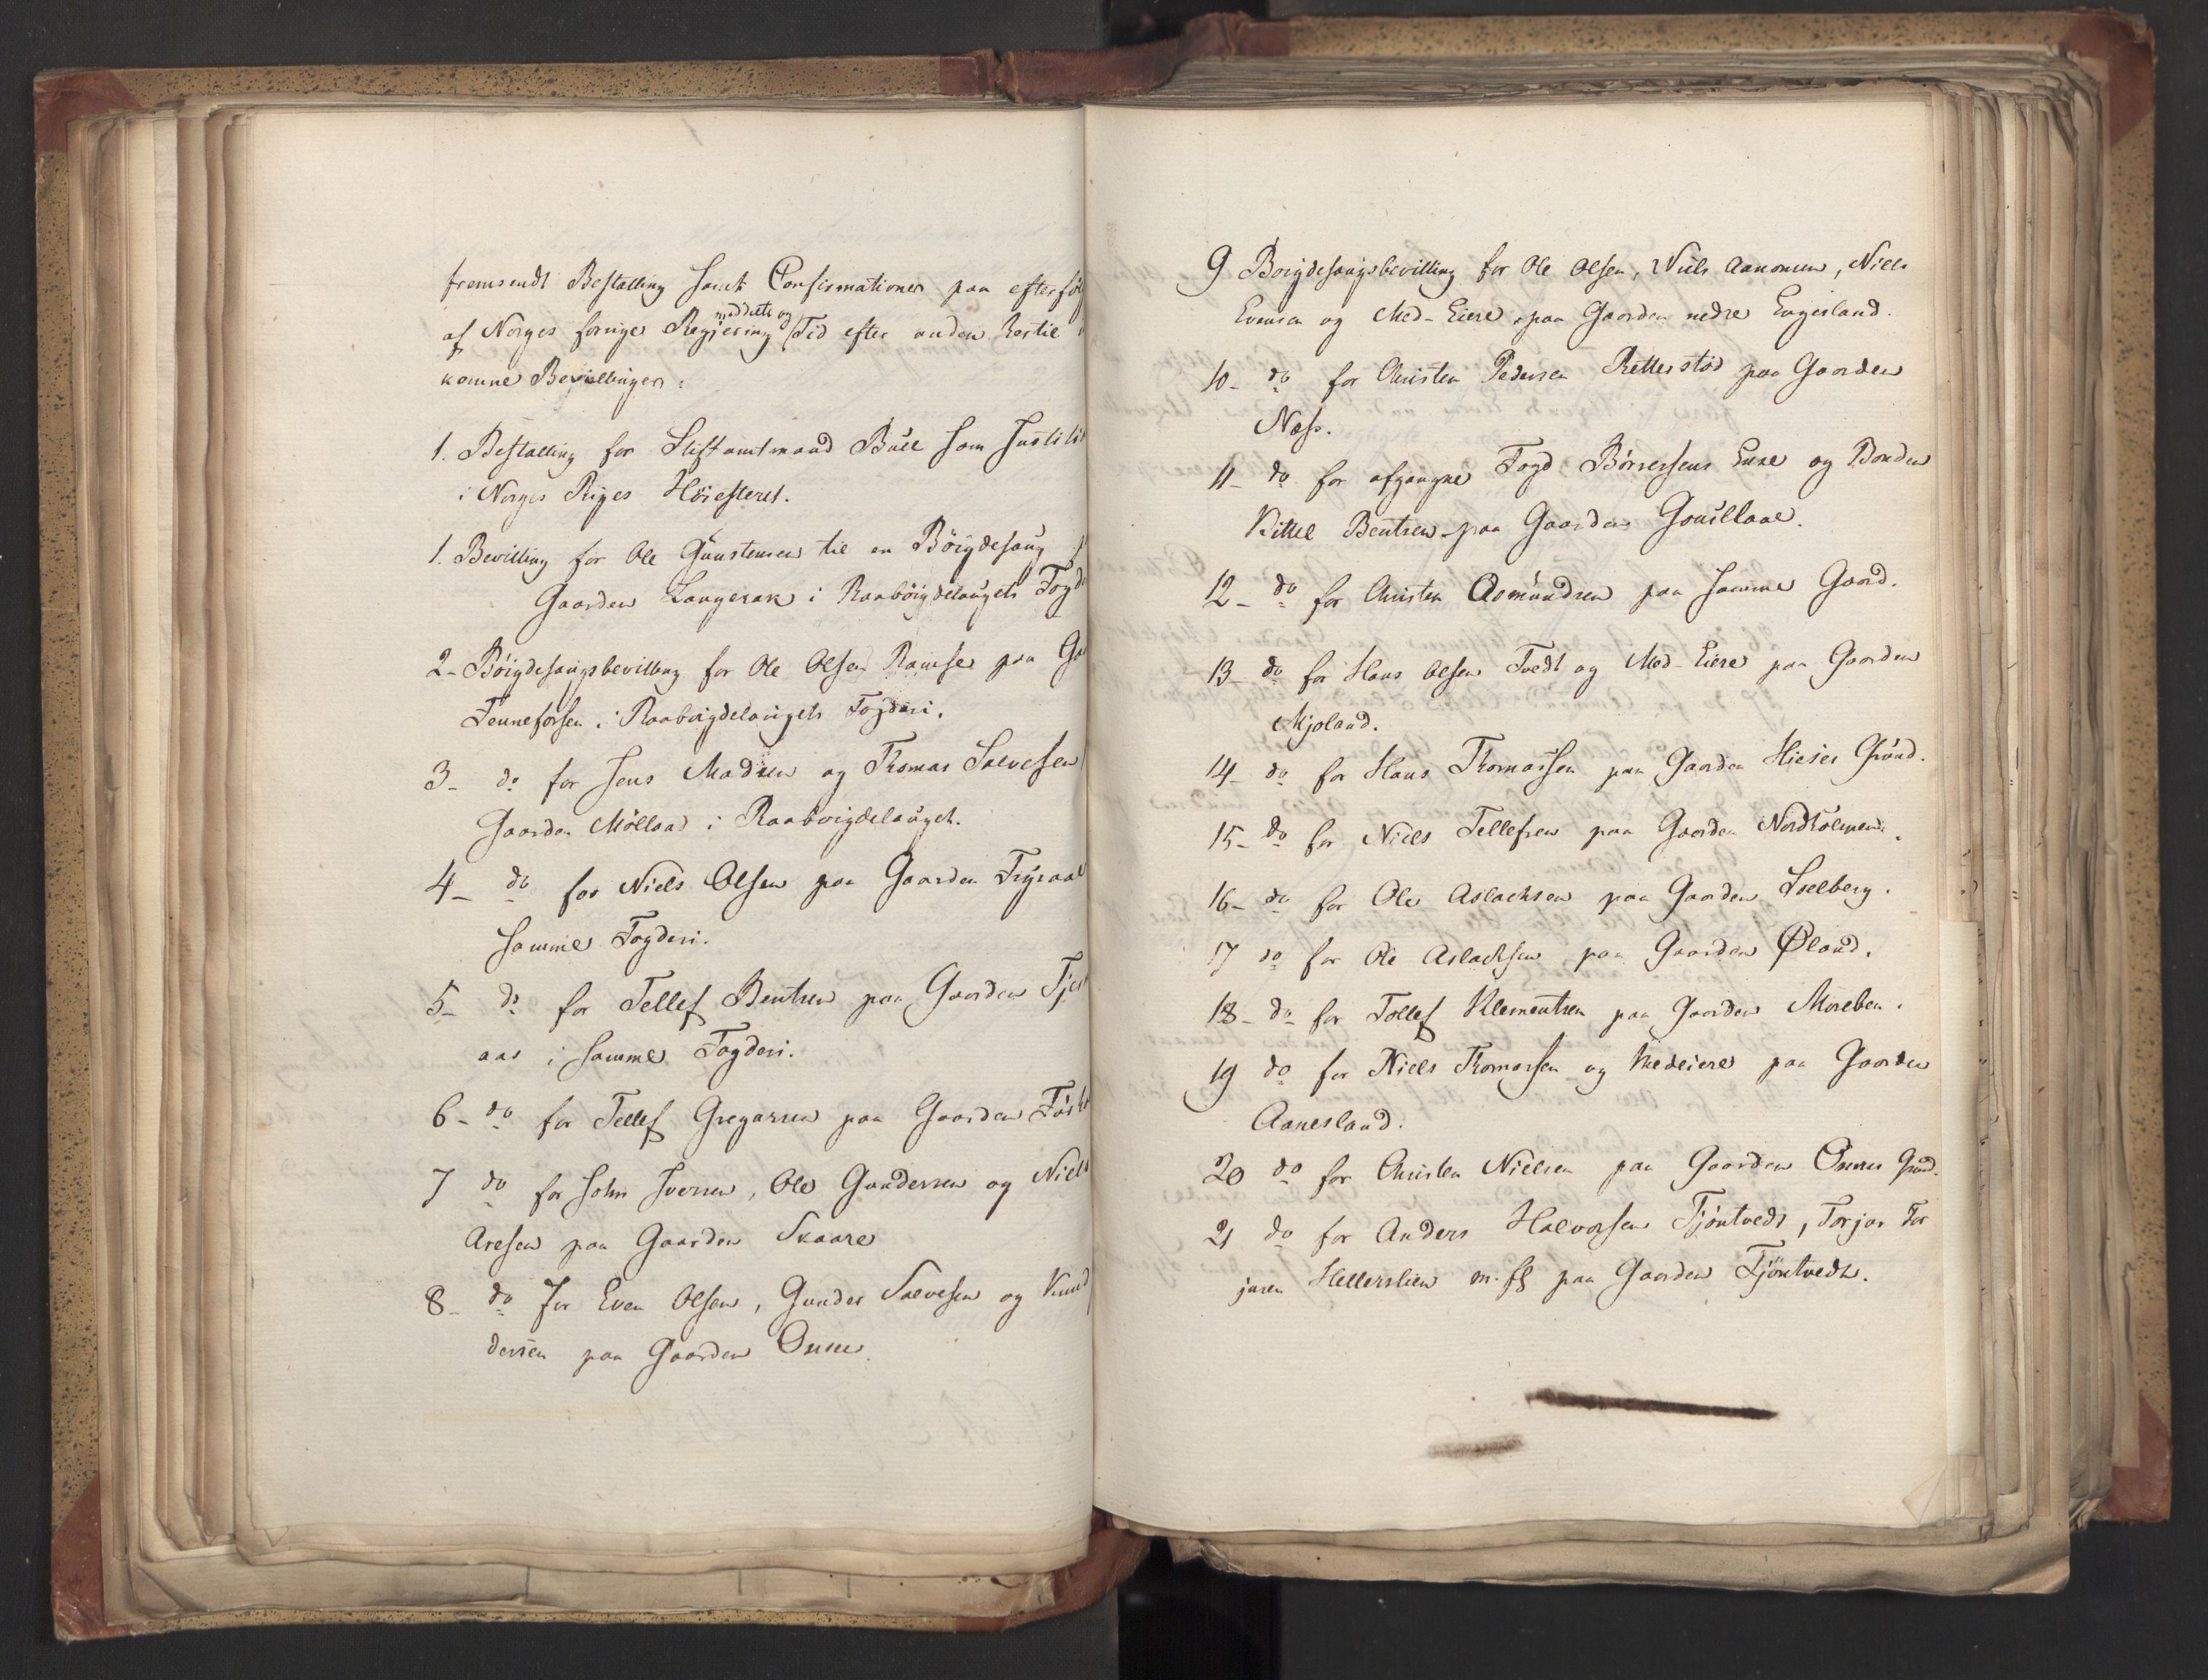 fremsendt Bestalling samt Confirmationer paa efterføl
meddelte og
af Norges forrige Regjering Tid efter anden hertil
komne Bevillinger:
1. Bestalling for Stiftamtmand Bull som Justiti
i Norges Riges Höiesteret.
1. Bevilling for Ole Gunstensen til en Böigdesaug
Gaarden Langerak i Raaböigdelaugets Fogd
2- Böigdesaugsbevilling for Ole Olsen Ramse paa Ga
Fennefossen i Raaboigdelaugets Fogderi.
3- do for Jens Madsen og Thomas Salvesen
Gaarden Mölland i Raaboigdelauget.
4- do for Niels Olsen paa Gaarden Frÿraas
samme Fogderi.
5- do for Tellef Bentsen paa Gaarden Tje
aas i samme Fogderi.
6- do for Tellef Gregarsen paa Gaarden
7 do for John Iversen, Ole Gundersen og Niels
Aresen paa Gaarden Skaare
8- do for Even Olsen, Gunder Salvesen og Knud
dersen paa Gaarden
9 Boigdesaugsbevilling for Ole Olsen, Niels Aanonsen, Niels
Evensen og Med-Eiere paa Gaarden nedre Engesland.
10- do for Christen Pedersen Retterstöd paa Gaarden
Næs.
11- do for afgangne Fogd Börresens Enke og Bonden
Kittel Bentsen paa Gaarden
12- do for Christen Aamundsen paa samme Gaard.
13- do for Hans Olsen Tvedt og Med-Eiere paa Gaarden
Mjoland.
14- do for Hans Thomassen paa Gaarden Grund.
15- do for Niels Tellefsen paa Gaarden
16- do for Ole Aslachsen paa Gaarden
17 do for Ole Aslachsen paa Gaarden Øland.
18- do for Tollef Klementsen paa Gaarden
19 do for Niels Thomassen og Medeiere paa Gaarden
Aanesland.
20 do for Christen Nielsen paa Gaarden
21 do for Anders Halvorsen Tjöntvedt, Torjar Tor
jusen Hellerslien m. fl paa Gaarden Tjöntvedt.